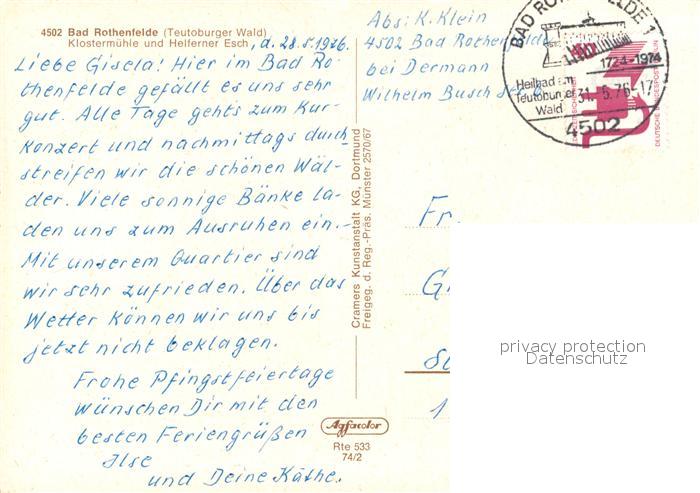 4502 Bad Rothenfelde (Teutoburger Wald)
Klostermühle und Helferner Esch
, d. 28.5.1976.
Liebe Gisela! Hier im Bad Ro-
thenfelde gefällt es uns sehr
gut. Alle Tage geht's zum Kur-
konzert und nachmittags durch-
streifen wir die schönen Wäl-
der. Viele sonnige Bänke la-
den uns zum Ausruhen ein.-
Mit unserem Quartier sind
wir sehr zufrieden. Über das
Wetter können wir uns bis
jetzt nicht beklagen.
Frohe Pfingstfeiertage
wünschen Dir mit den
besten Feriengrüßen
Ilse
und Deine Käthe.
Cramers Kunstanstalt KG, Dortmund
Freigeg. d. Reg.-Präs. Münster 2570/67
Agfacolor
Rte 533
74/2
Abs: K. Klein
4502 Bad Rothenfelde
bei Dermann
Wilhelm Busch
BAD ROTHENFELDE 1
1724-1974
Heilbad im
Teutoburger
Wald
31.5.76.-17
4502
DEUTSCHE BUNDESPOST BERLIN
Fr
G
1
privacy protection
Datenschutz